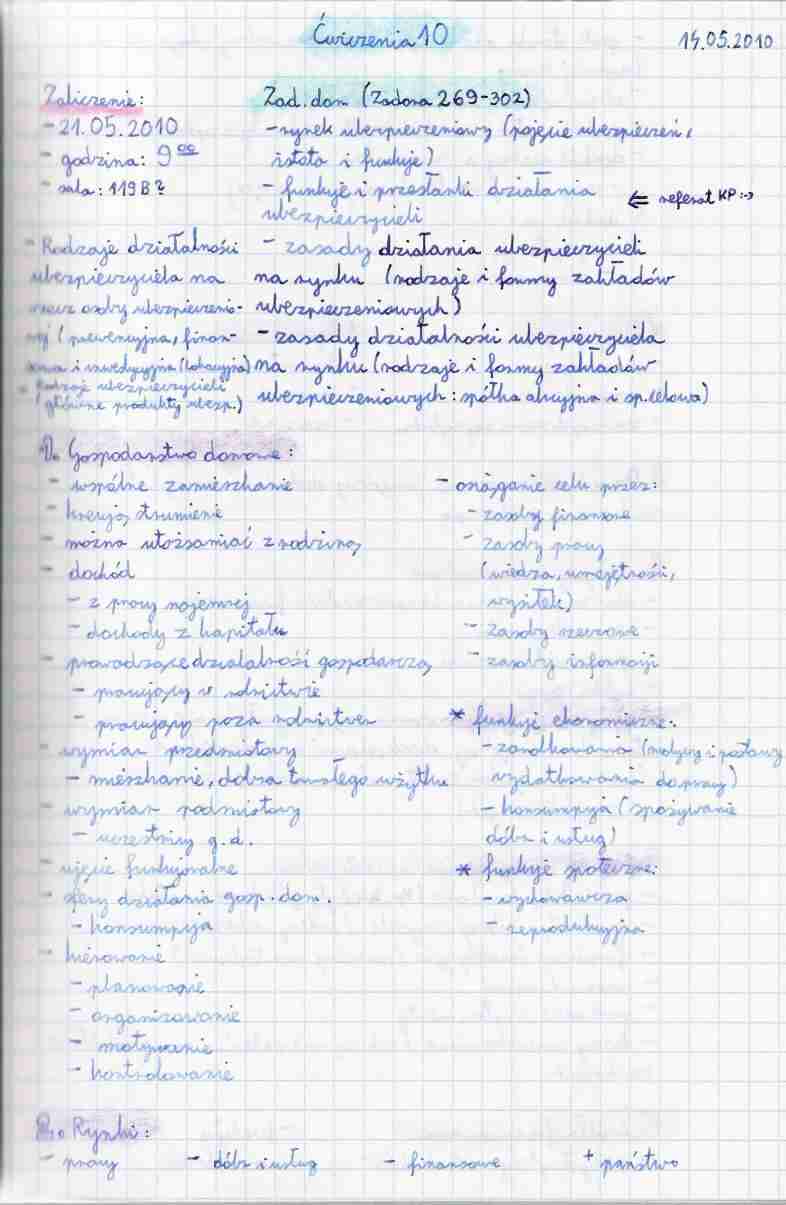 Ćwiczenia 10
14.05.2010
Zaliczenie:
- 21.05.2010
- godzina: 9⁰⁰
- sala: 119B?
- Rodzaje działalności
ubezpieczyciela na
rzecz osoby ubezpieczenio-
wej (prewencyjna, finan-
sowa i inwestycyjna (lokacyjna)
- Rodzaje ubezpieczycieli
(główne produkty ubezp.)
Zad. dom (Zadora 269-302)
- rynek ubezpieczeniowy (pojęcie ubezpieczeń,
istota i funkcje)
- funkcje i przesłanki działania
ubezpieczycieli
⇐ referat KP :->
- zasady działania ubezpieczycieli
na rynku (rodzaje i formy zakładów
ubezpieczeniowych)
- zasady działalności ubezpieczyciela
na rynku (rodzaje i formy zakładów
ubezpieczeniowych: spółka akcyjna i sp. celowa)
1. Gospodarstwo domowe:
- wspólne zamieszkanie
- kreują strumienie
- można utożsamiać z rodziną
- dochód
- z pracy najemnej
- dochody z kapitału
- prowadzące działalność gospodarczą
- pracujący w rolnictwie
- pracujący poza rolnictwem
- wymiar przedmiotowy
- mieszkanie, dobra trwałego użytku
- wymiar podmiotowy
- uczestnicy g.d.
- ujęcie funkcjonalne
- sfery działania gosp. dom.
- konsumpcja
- kierowanie
- planowanie
- organizowanie
- motywowanie
- kontrolowanie
- osiąganie celu przez:
- zasoby finansowe
- zasoby pracy
(wiedza, umiejętności,
wysiłek)
- zasoby rzeczowe
- zasoby informacji
* funkcje ekonomiczne:
- zarobkowania (motywy i postawy
wydatkowania do pracy)
- konsumpcja (spożywanie
dóbr i usług)
* funkcje społeczne:
- wychowawcza
- reprodukcyjna
2. Rynki:
- pracy - dóbr i usług - finansowe + państwo